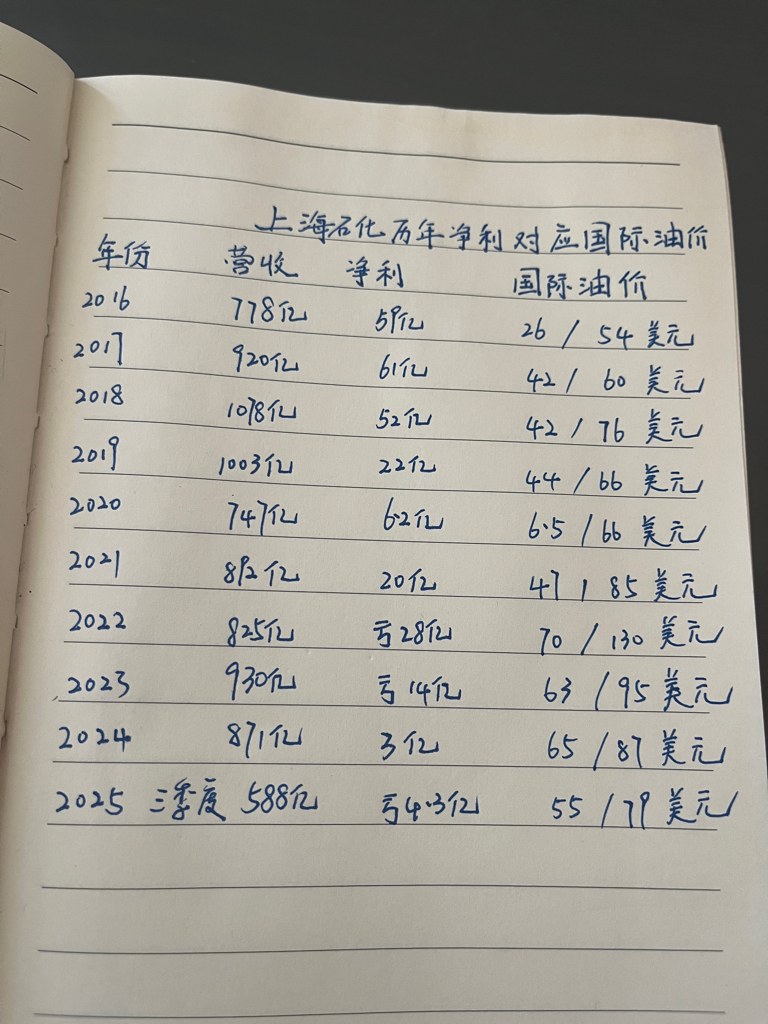 上海石化历年净利对应国际油价
年份 营收 净利 国际油价
2016 778亿 59亿 26 / 54 美元
2017 920亿 61亿 42 / 60 美元
2018 1078亿 52亿 42 / 76 美元
2019 1003亿 22亿 44 / 66 美元
2020 747亿 6.2亿 6.5 / 66 美元
2021 892亿 20亿 47 / 85 美元
2022 825亿 亏28亿 70 / 130 美元
2023 930亿 亏14亿 63 / 95 美元
2024 871亿 3亿 65 / 87 美元
2025 三季度 588亿 亏4.3亿 55 / 79 美元